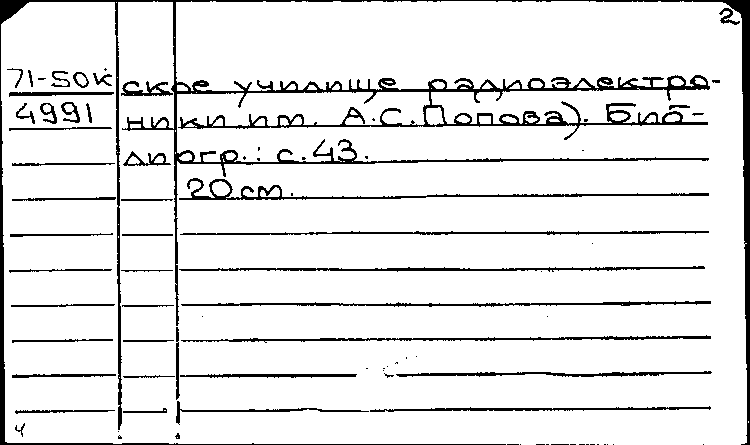 2
71-50к ское училище радиоэлектро-
4991 ники им. А.С.Попова). Биб-
лиогр.: с.43.
20 см.
ч